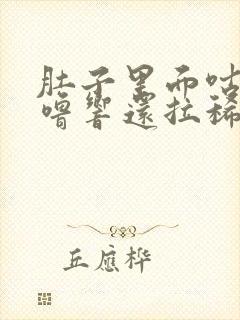 肚子里面咕
噜响还拉稀
丘应桦